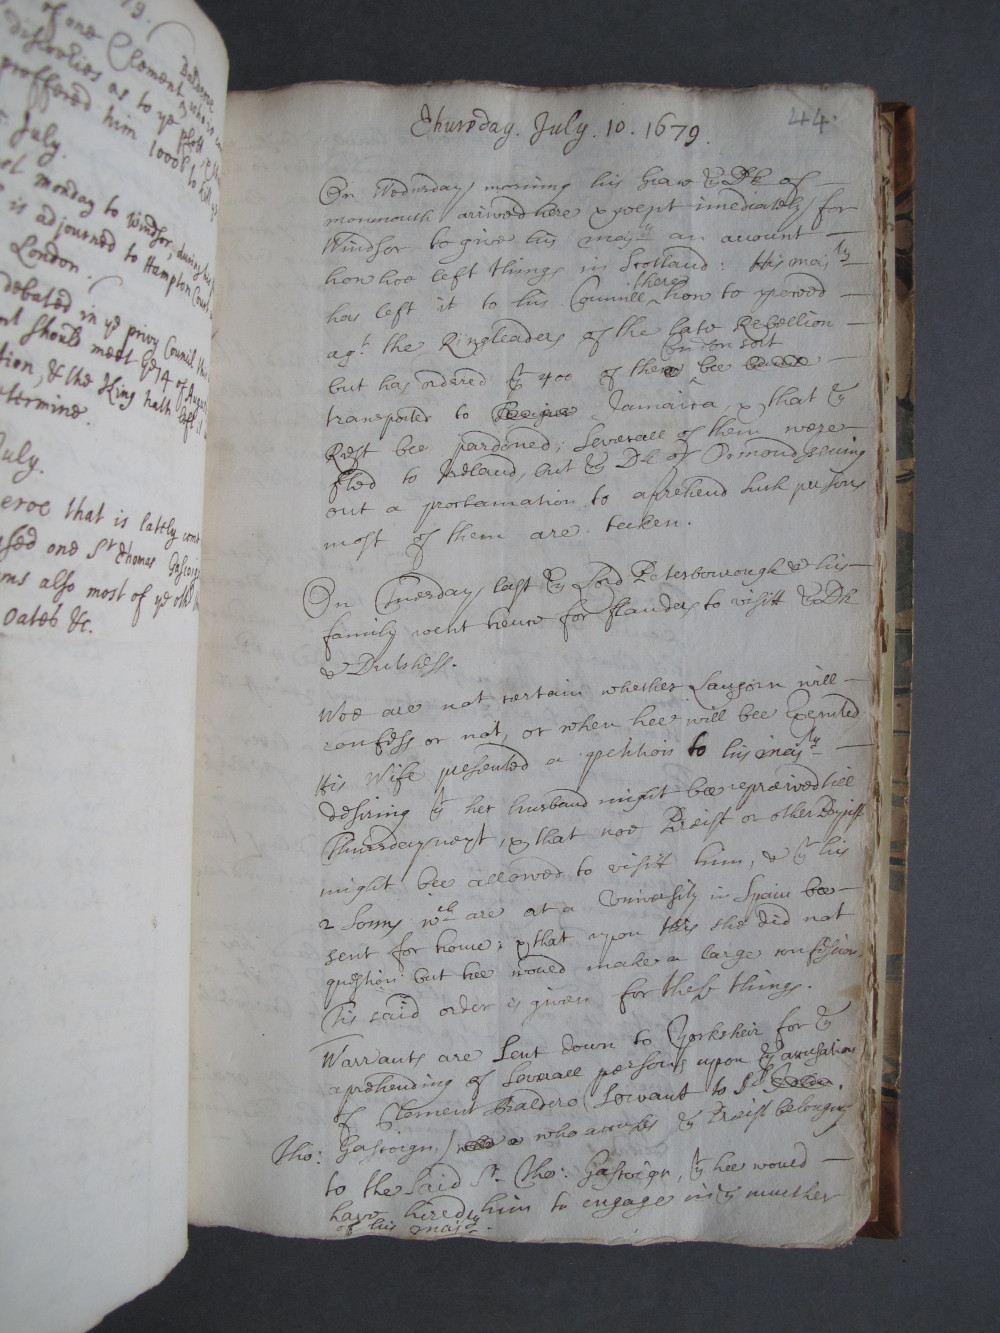 79.
of one Clement
discoveries as to ye plott
proffered him 1000l to kill
July.
monday to Windsor, during his
is adjourned to Hampton Court
London.
debated in ye privy Council that
should meet ye 14 of August
& the King hath left it
determine.
July.
that is lattly come
one Sr Thomas Gascoign
also most of ye other
Oates &c.
44.
Thursday. July. 10. 1679.
On Wednesday morning his Grace ye Dk of
monmouth arived here & poept imediately for
Windsor to give his majty an acount
how hee left things in Scotland: His majty
has left it to his Councill there how to proceed
agt the Ringleaders of the late Rebellion
but has ordered yt 400 of them bee
transported to Jamaica, & that ye
Rest bee pardoned; Severall of them were
fled to Ireland, but ye Dk of Ormond issuing
out a proclamation to aprehend such persons
most of them are taeken.
On Tuesday last ye Lord Peterborrough & his
family went hence for flanders to visitt ye Dk
& Dutchess.
Wee are not certain whether Langorn will
confess or not, or when hee will bee Executed
His Wife presented a petition to his majty
desiring yt her husband might bee reprieved till
Thursday next, & that noe Prieist or other Papist
might bee allowed to visitt him, & yt his
2 Sonns wch are at a University in Spain bee
sent for home; & that upon this she did not
question but hee would make a large confession.
Tis said order is given for these things.
Warrants are Sent down to Yorksheir for ye
aprehending of Severall persons upon ye accusation
of Clement Baldero (Servant to Sr
Tho: Gascoign) who accuses ye Prieist belonging
to the Said Sr. Tho: Gascoign, yt hee would
have hired him to engage in ye murther
of his majty.